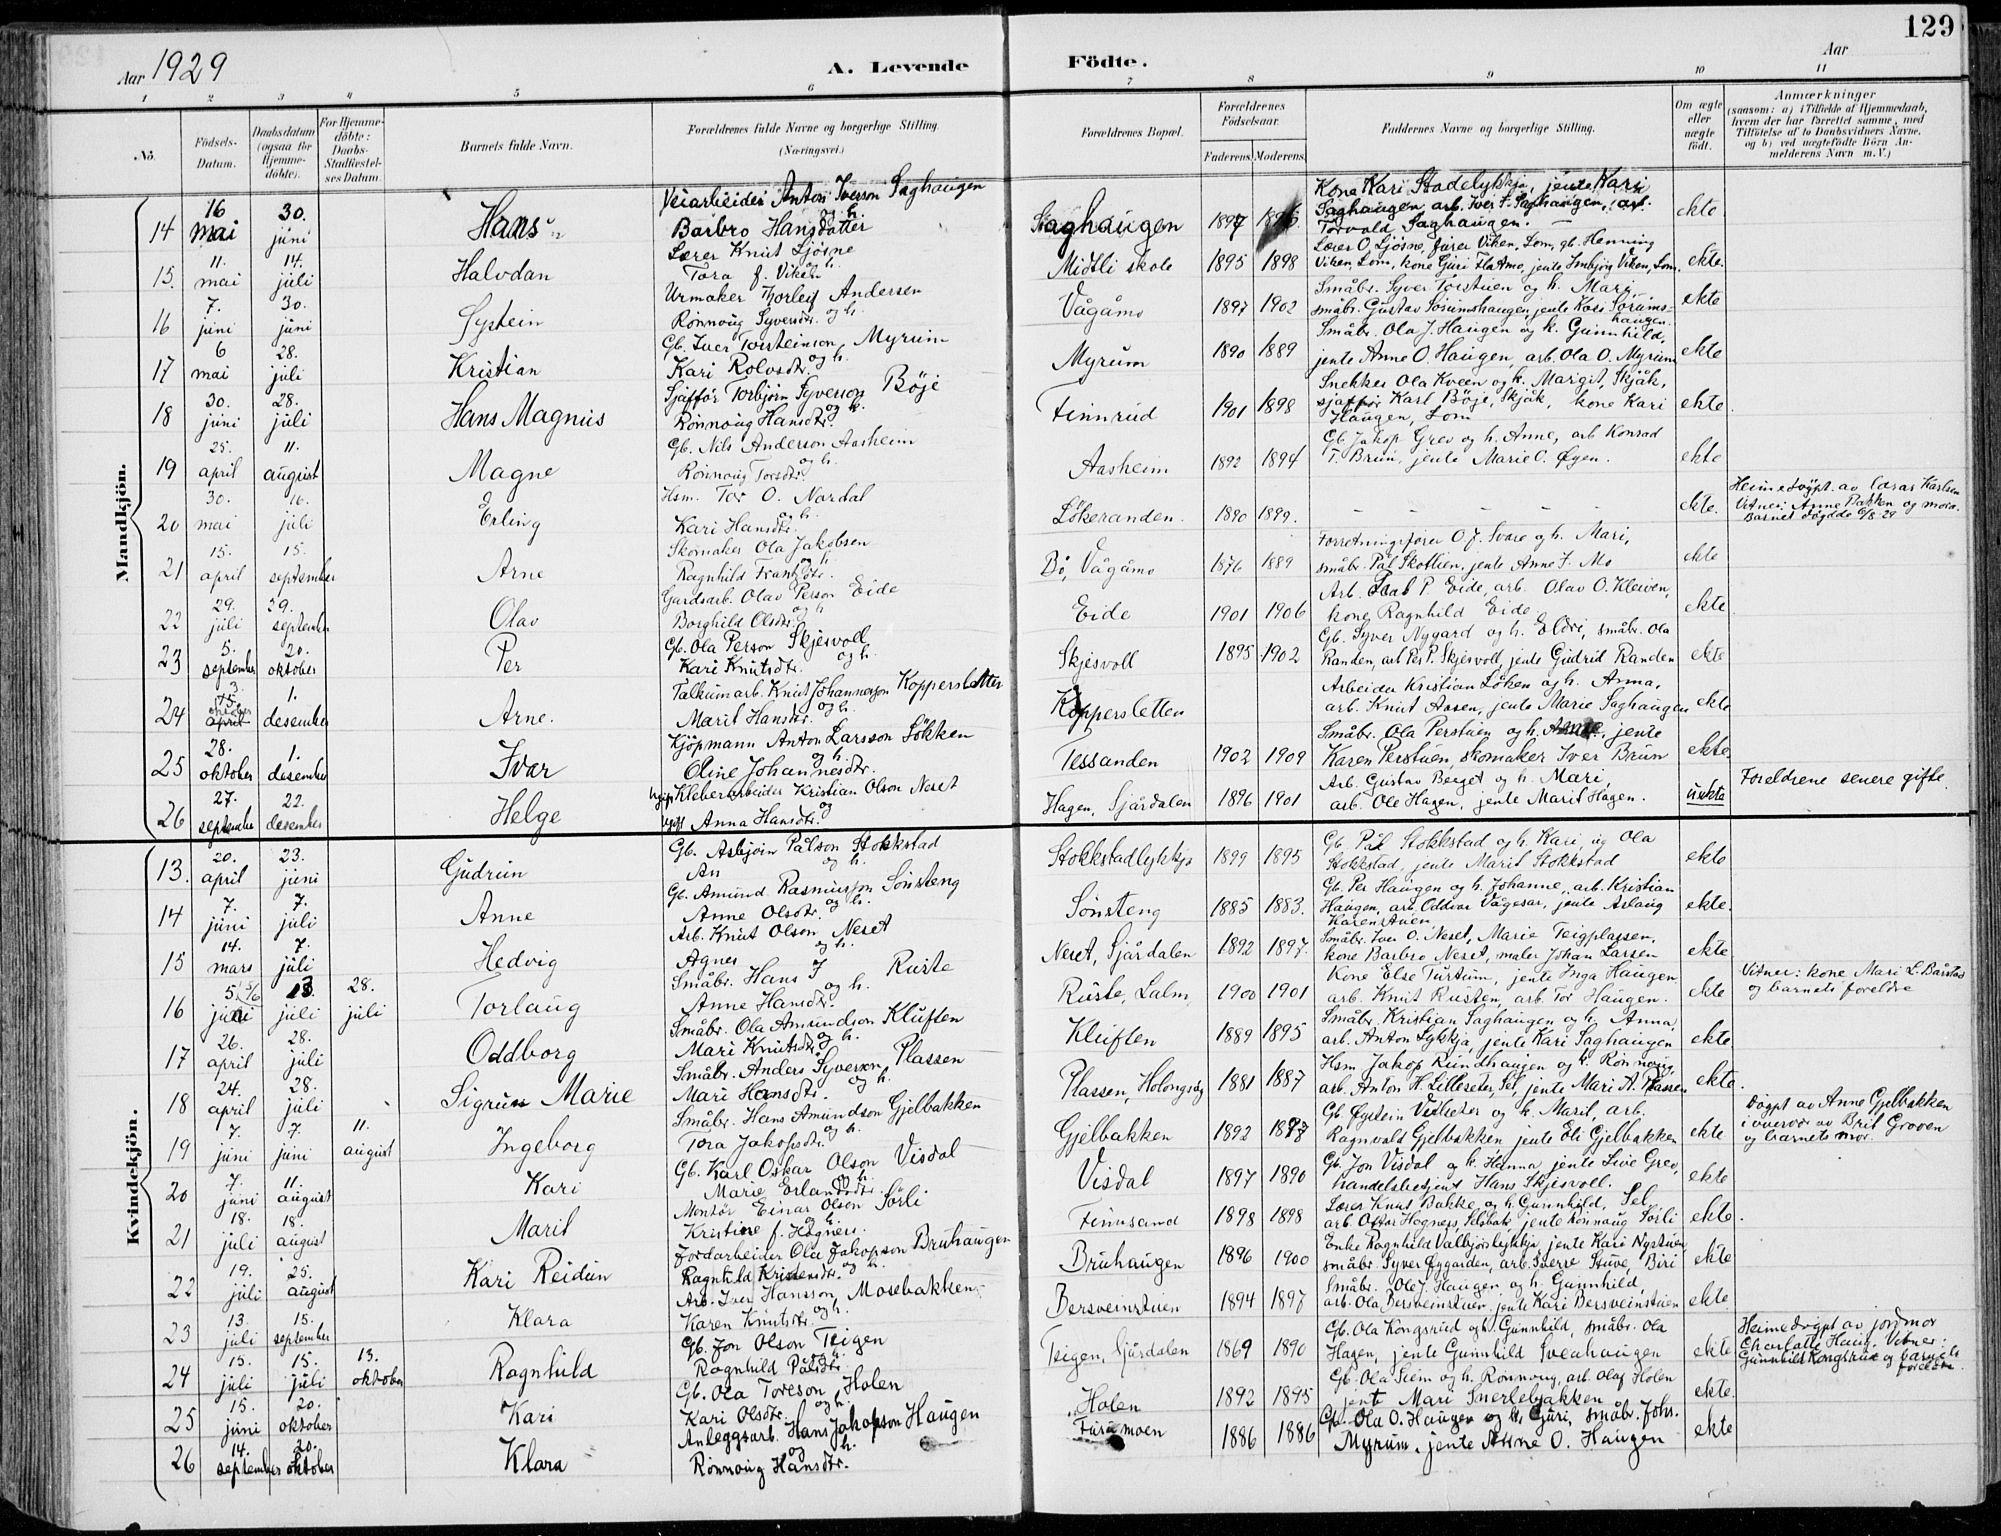 129
Aar 1929
A. Levende Födte.
Aar
1 2 3 4 5 6 7 8 9 10 11
No.
Födsels-Datum.
Daabsdatum (ogsaa for Hjemme-döbte).
For Hjemme-döbte: Daabs-Stadfæstel-ses Datum.
Barnets fulde Navn.
Forældrenes fulde Navne og borgerlige Stilling. (Næringsvei.)
Forældrenes Bopæl.
Forældrenes Födselsaar.
Faderens. Moderens.
Faddernes Navne og borgerlige Stilling.
Om ægte eller uægte födt.
Anmærkninger (saasom: a) i Tilfælde af Hjemmedaab, hvem der har forrettet samme, med Tilföielse af to Daabsvidners Navne, og b) ved uægtefödte Börn An-melderens Navn m.V.)
Mandkjön.
14 16 mai 30. juni Hans Veiarbeider Anton Iverson Saghaugen og h. Barbro Hansdatter Saghaugen 1897 Kone Kari Stadelykkja, jente Kari Saghaugen, arb. Iver F. Saghaugen, arb. Torvald Saghaugen. ekte
15. 11. mai 14. juli Halvdan Lærer Knut Sjösne og h. Tora f. Viken Midtli skole 1895 1898 Lærer O. Sjösne, furer Viken, Lom, gb. Henning Viken, Lom, kone Guri Flatmo, jente Imbjörg Viken, Lom. ekte.
16 7. juni 30. juni Øystein Urmaker Thorleif Andersen og h. Rönnoug Syversdtr. Vågåmo 1897 1902 Småbr. Syver Torstuen og h. Mari, småbr. Gustav Sörumshaugen, jente Kari Sörums-haugen. ekte
17 6 mai 28. juli Kristian Gb. Iver Torsteinson Myrum og h. Kari Rolvsdtr. Myrum 1890 1889 Småbr. Ola J. Haugen og k. Gunnhild, jente Anne O. Haugen, arb. Ola O. Myrum ekte
18 30. juni 28. juli Hans Magnus Sjåffør Torbjörn Syverson Böje og h. Rönnoug Hansdtr. Finnrud 1901 1898 Snekker Ola Kveen og k. Margit, Skjåk, sjaffør Karl Böje, Skjåk, kone Kari Haugen, Lom ekte.
19 25. april 11. august Magne Gb. Nils Anderson Aasheim og h. Rönnoug Torsdtr. Aasheim 1892 1894 Gb. Jakop Grev og h. Anne, arb Konrad T. Brun, jente Marie O. Øyen. ekte
20 30. mai 16. juli Erling Hsm. Tor O. Nordal og h. Kari Hansdtr. Lökeranden. 1890 1899. - - - - - ekte. Heimedöypt. av Lærar Karlsen Vitner: Anne Bakken og mora. Barnet dögdde 6/8 29
21 15. april 15. september Arne Skomaker Ola Jakobsen og h Ragnhild Frantsdtr. Bö, Vågåmo 1876 1889 Forretningsförer O J. Svare og h. Mari, småbr. Pål Skottien, jente Anne F. Mo ekte
22 29. juli 29. september Olav Gardsarb. Olav Person Eide og h Borghild Olsdtr. Eide 1901 1906 Arb. Paal P. Eide, arb. Olav O. Kleiven, kone Ragnhild Eide ekte.
23 5. september 20. oktober Per Gb. Ola Person Skjesvoll og h. Kari Knutsdtr. Skjesvoll 1895 1902 Gb. Syver Nygard og h. Eldri, småbr. Ola Randen, arb Per P. Skjesvoll, jente Gudrid Randen ekte
24 3 15. oktober april 1. desember Arne. Talkumarb. Knut Johannesson Kopperslettten og h. Marit Hansdtr. Koppersletten Arbeider Kristian Löken og h. Anna, arb. Knut Aasen, jente Marie Saghaugen ekte
25 28. oktober 1. desember Ivar Kjöpmann Anton Larsson Sökken og h. Oline Johannesdtr. Tessanden 1902 1909 Småbr. Ola Perstuen og h. Anne, jente Karen Perstuen, skomaker Iver Brun ekte.
26 27. september 22. desember Helge Ugift Kleberarbeider Kristian Olson Neset og Ugift Anna Hansdtr. Hagen, Sjårdalen 1896 1901 Arb. Gustav Berget og h. Mari, arb. Ole Hagen, jente Marit Hagen. uekte Foreldrene senere gifte.
Kvindekjön.
13. 20. april 23. juni Gudrun Gb. Asbjörn Pålson Stokkstad og h. An Stokkstadlykkja 1899 1895 Gb. Pål Stokkstad og h. Kari, ug Ola Stokkstad, jente Marit Stokkstad ekte
14 7. juni 7. juli Anne Gb. Amund Rasmusson Sönsteng og h. Anne Olsdtr. Sönsteng 1885 1883. Gb. Per Haugen og h. Johanne, arb. Kristian Haugen, arb. Oddvar Vågesar, jente Aslaug Karenstuen ekte.
15 14. mars 7. juli Hedvig Arb. Knut Olson Neset og h. Agnes Neset, Sjårdalen 1892 1897. Småbr. Iver O. Neset, Marie Teigplassen, kone Barbro Neset, maler Johan Larsen ekte
16 5. 5/6 juni 13. juli 28. juli Torlaug Småbr. Hans J Ruste og h. Anne Hansdtr. Ruste, Lalm 1900 1901 Kone Else Turtum, jente Inga Haugen arb. Knut Rusten, arb. Tor Haugen. ekte Vitner: kone Mari L. Bårstad og barnets foreldre
17 26. april 28. juli Oddborg Småbr. Ola Amundson Kluften og h. Mari Knutsdtr. Kluften 1889 1895 Småbr. Kristian Saghaugen og h. Anna, arb. Anton Lykkja, jente Kari Saghaugen ekte
18 24. april 28. juli Sigrun Marie Småbr. Anders Syverson Plassen og h. Mari Hansdtr. Plassen, 1881 1887 Hsm Jakop Rundhaugen og h. Rönnoug, arb. Anton H. Lilleseter, Sel, jente Mari A. Plassen ekte.
19 7. juni 7. juni 11. august Ingeborg Småbr. Hans Amundson Gjelbakken og h. Tora Jakopsdtr. Gjelbakken 1892 Gb Øystein Vedheser og h. Marit, arb. Ragnvald Gjelbakken, jente Eli Gjelbakken ekte Döypt av Anne Gjelbakken i overvær av Brit Groven og barnets mor.
20 7. juni 11. august Kari Gb. Karl Oskar Olson Visdal og h. Marie Erlandsdtr. Visdal 1897 1890 Gb. Jon Visdal og k. Hanna, jente Live Grev, handelsbetjent Hans Skjesvoll. ekte
21 18. juli 18. august Marit Montör Einar Olson Sörli og h. Kristine f. Hågnes Finnsand 1898 1898 Lærer Knut Bakke og h. Gunnhild, Sel, arb. Ottar Hogness, Selsbak, jente Rönnaug Sörli ekte.
22 19. juli 25. august Kari Reidun Jordarbeider Ola Jakopson Bruhaugen og h. Ragnhild Kristensdtr. Bruhaugen 1896 1900 Enke Ragnhild Valbjörslykkja, jente Kari Nystuen, småbr. Syver Øygarden, arb. Sverre Stuve, Biri ekte
23 13. juli 15. september Klara Arb. Iver Hansson Mosebakken og h. Karen Knutsdtr. Bersveinstuen 1894 1897 Småbr. Ole J. Haugen og h. Gunnhild, arb. Ola Bersveinstuen, jente Kari Bersveinstuen ekte
24 15. juli 15. juli 13. oktober Ragnhild Gb. Jon Olson Teigen og h. Ragnhild Pålsdtr. Teigen, Sjårdalen 1869 1890 Gb. Ola Kongsrud og h. Gunnhild, småbr. Ola Hagen, jente Gunnhild Sveahaugen ekte Heimedöypt av jordmor Charlotte Haug. Vitner: Gunnhild Kongsrud og barnets foreldre.
25 15. juni 20. oktober Kari Gb. Ola Toreson Holen og h. Kari Olsdtr. Holen 1892 1895 Gb. Ola Siem og h. Rönnoug, arb. Olaf Holen jente Mari Snerlebakken ekte.
26 14. september 20. oktober Klara Anleggsarb. Hans Jakopson Haugen og h. Rönnoug Hansdtr. Furumoen 1886 1886 Gb. Ola O. Haugen og h. Guri, småbr. Johs. Myrum, jente Anne O. Haugen ekte